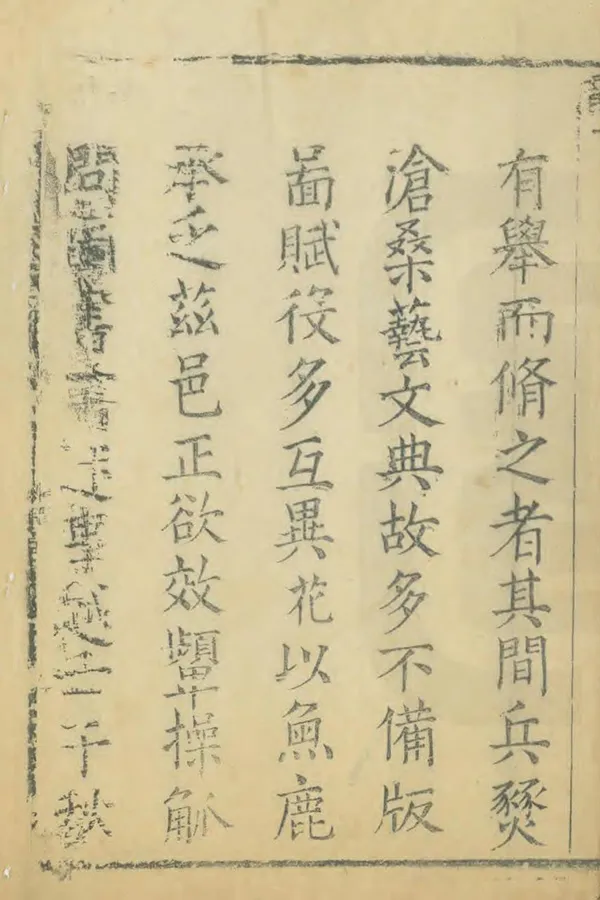 有舉而脩之者其間兵燹
滄桑藝文典故多不備版
啚賦役多互異花以魚鹿
承乏茲邑正欲效顰操觚
問